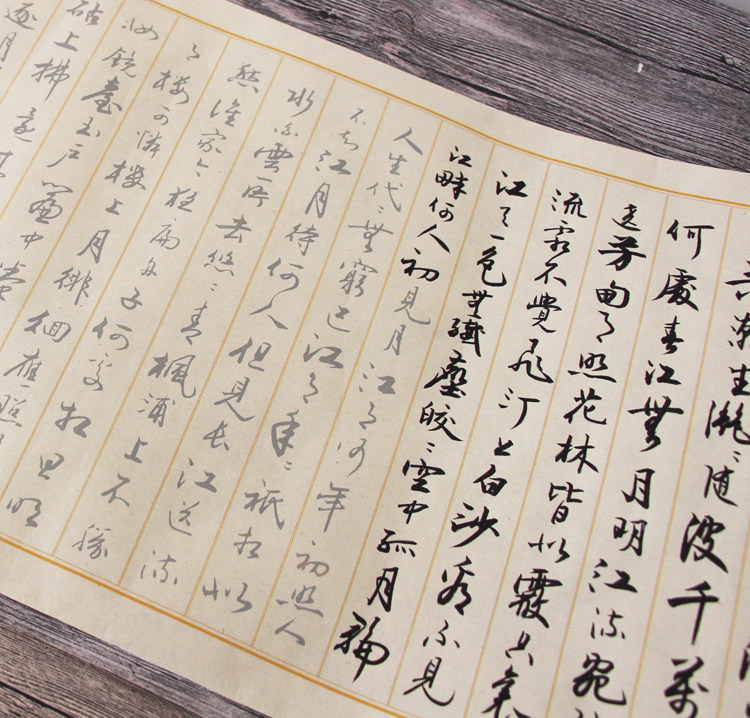 共潮生灩〻隨波千萬
何處春江無月明江流宛
遶芳甸月照花林皆似霰空
流霜不覺飛汀上白沙看不見
江天一色無纖塵皎〻空中孤月輪
江畔何人初見月江月何年初照人
人生代〻無窮已江月年〻祇相似
不知江月待何人但見長江送流
水白雲一片去悠〻青楓浦上不勝
愁誰家今夜扁舟子何處相思明
月樓可憐樓上月徘徊應照
妝鏡臺玉戶簾中卷
砧上拂還
逐月